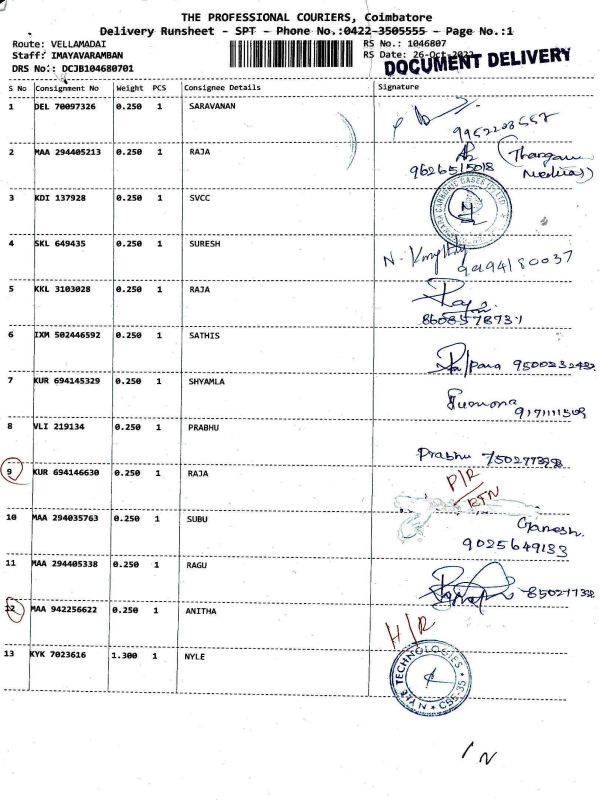 THE PROFESSIONAL COURIERS, Coimbatore
Delivery Runsheet - SPT - Phone No.:0422-3505555 - Page No.:1
Route: VELLAMADAI RS No.: 1046807
Staff: IMAYAVARAMBAN RS Date: 26-Oct-2022
DRS No.: DCJB104680701 DOCUMENT DELIVERY
S No Consignment No Weight PCS Consignee Details Signature
1 DEL 70097326 0.250 1 SARAVANAN
9952208557
2 MAA 294405213 0.250 1 RAJA
9626515018
3 KDI 137928 0.250 1 SVCC
4 SKL 649435 0.250 1 SURESH
9994180037
5 KKL 3103028 0.250 1 RAJA
8608578731
6 IXM 502446592 0.250 1 SATHIS
9500232432
7 KUR 694145329 0.250 1 SHYAMLA
8 VLI 219134 0.250 1 PRABHU
Prabhu
9 KUR 694146630 0.250 1 RAJA P/R
RTN
10 MAA 294035763 0.250 1 SUBU Ganesh
9025649133
11 MAA 294405338 0.250 1 RAGU
12 MAA 942256622 0.250 1 ANITHA H/R
13 KYK 7023616 1.300 1 NYLE NYLE TECHNOLOGIES